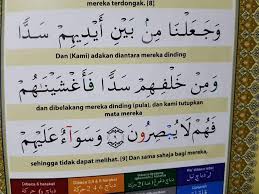 mereka terdongak. [8]
وَجَعَلْنَا مِنْ بَيْنِ أَيْدِيهِمْ سَدًّا
Dan (Kami) adakan diantara mereka dinding
وَمِنْ خَلْفِهِمْ سَدًّا فَأَغْشَيْنَٰهُمْ
dan dibelakang mereka dinding (pula), dan kami tutupkan
mata mereka
فَهُمْ لَا يُبْصِرُونَ ۝ وَسَوَآءٌ عَلَيْهِمْ
sehingga tidak dapat melihat. [9] Dan sama sahaja bagi mereka,